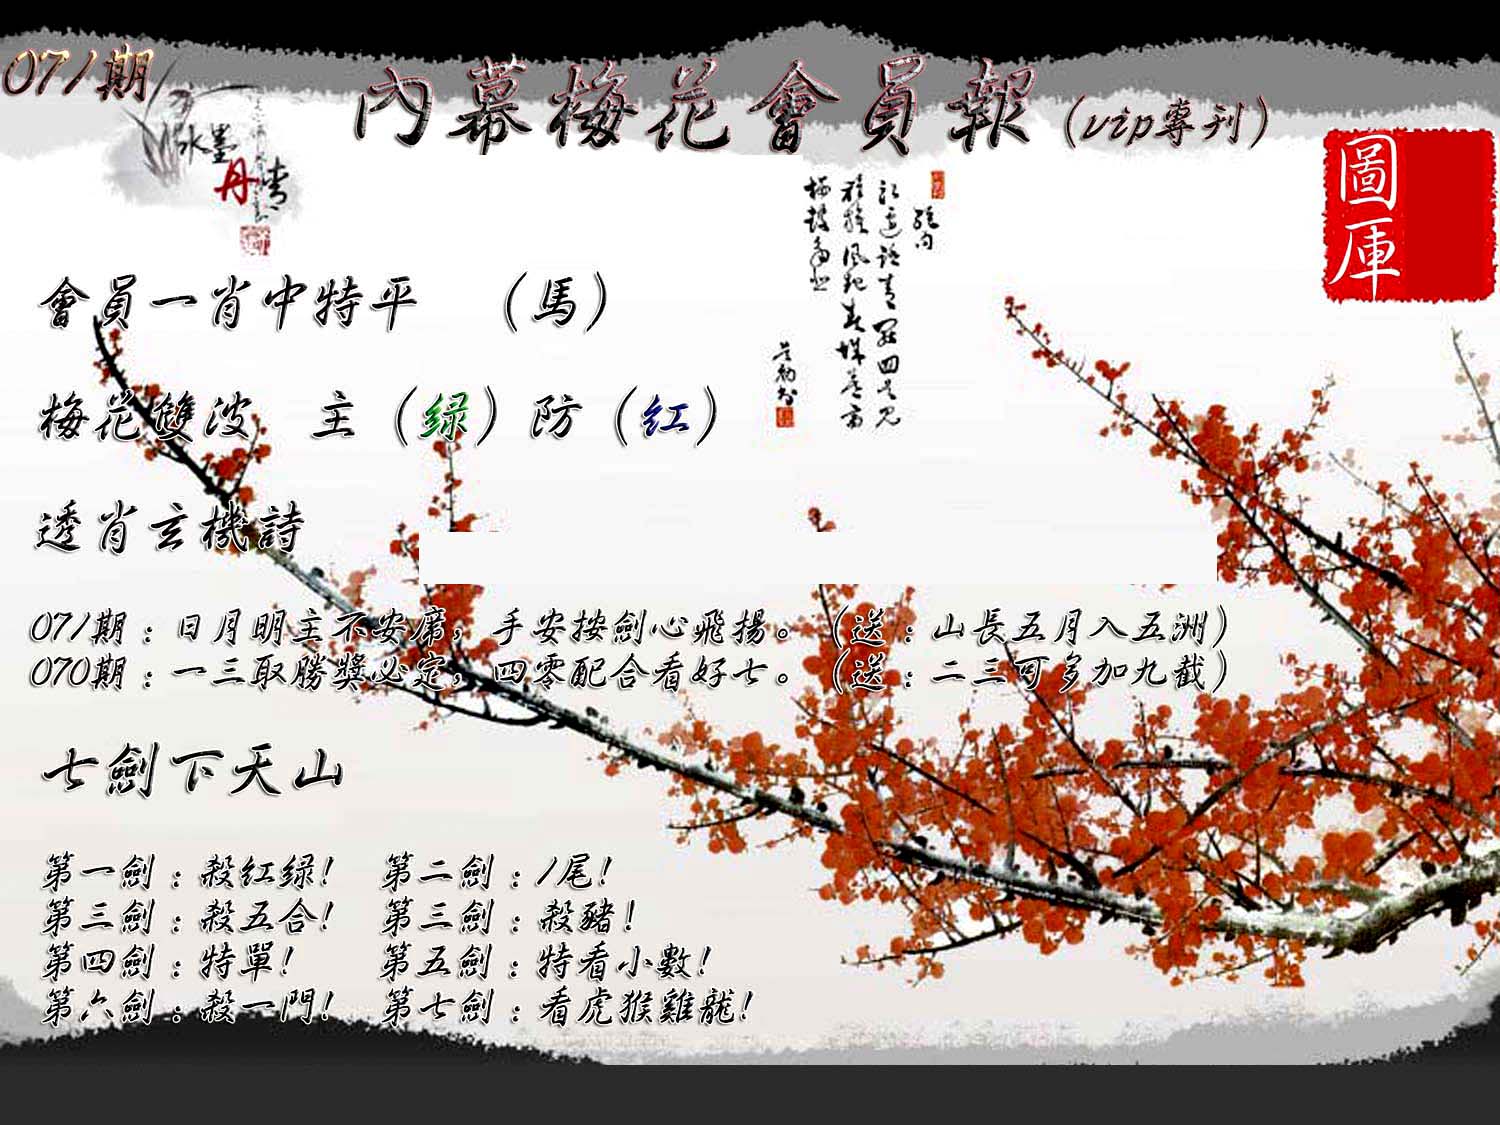 071期
內幕梅花會員報(vip專刊)
水墨
丹青
圖庫
會員一肖中特平 (馬)
梅花雙波 主(绿)防(红)
透肖玄機詩
071期:日月明主不安席,手安按劍心飛揚。(送:山長五月入五洲)
070期:一三取勝獎必定,四零配合看好七。(送:二三可多加九截)
七劍下天山
第一劍:殺红绿! 第二劍:1尾!
第三劍:殺五合! 第三劍:殺豬!
第四劍:特單! 第五劍:特看小數!
第六劍:殺一門! 第七劍:看虎猴雞龍!